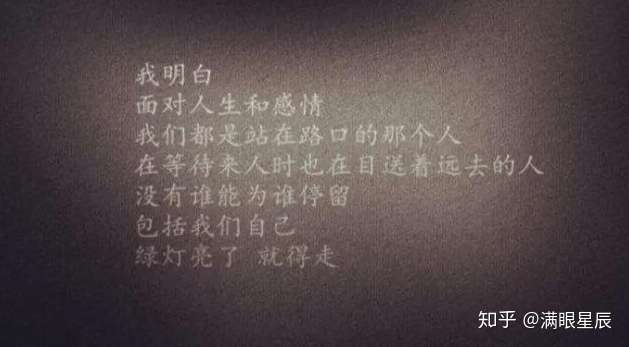 我明白
面对人生和感情
我们都是站在路口的那个人
在等待来人时也在目送着远去的人
没有谁能为谁停留
包括我们自己
绿灯亮了 就得走
知乎 @满眼星辰